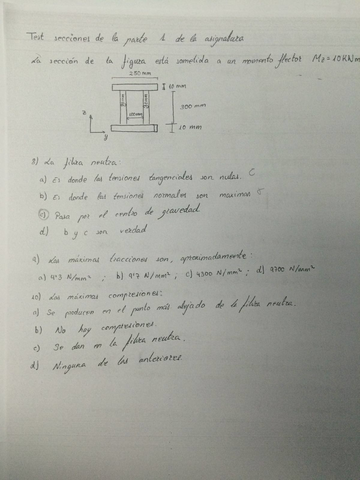 Test secciones de la parte 1 de la asignatura
La sección de la figura está sometida a un momento flector Mz = 10 KN m
250 mm
10 mm
300 mm
10 mm
z
y
8) La fibra neutra
a) Es donde las tensiones tangenciales son nulas. C
b) Es donde las tensiones normales son maximas
c) Pasa por el centro de gravedad
d) b y c son verdad
9) Las máximas tracciones son, aproximadamente:
a) 9'3 N/mm² ; b) 9'7 N/mm² ; c) 9300 N/mm² ; d) 9700 N/mm²
10) Las máximas compresiones:
a) Se producen en el punto más alejado de la fibra neutra.
b) No hay compresiones.
c) Se dan en la fibra neutra.
d) Ninguna de las anteriores.